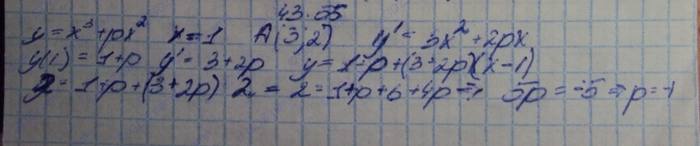 43.55
y = x³ + px² x = 1 A(3;2) y' = 3x² + 2px
y(1) = 1+p y' = 3+2p y = 1+p+(3+2p)(x-1)
2 = 1+p+(3+2p) 2 = 2 = 1+p+6+4p ⇒ 5p = -5 ⇒ p = -1